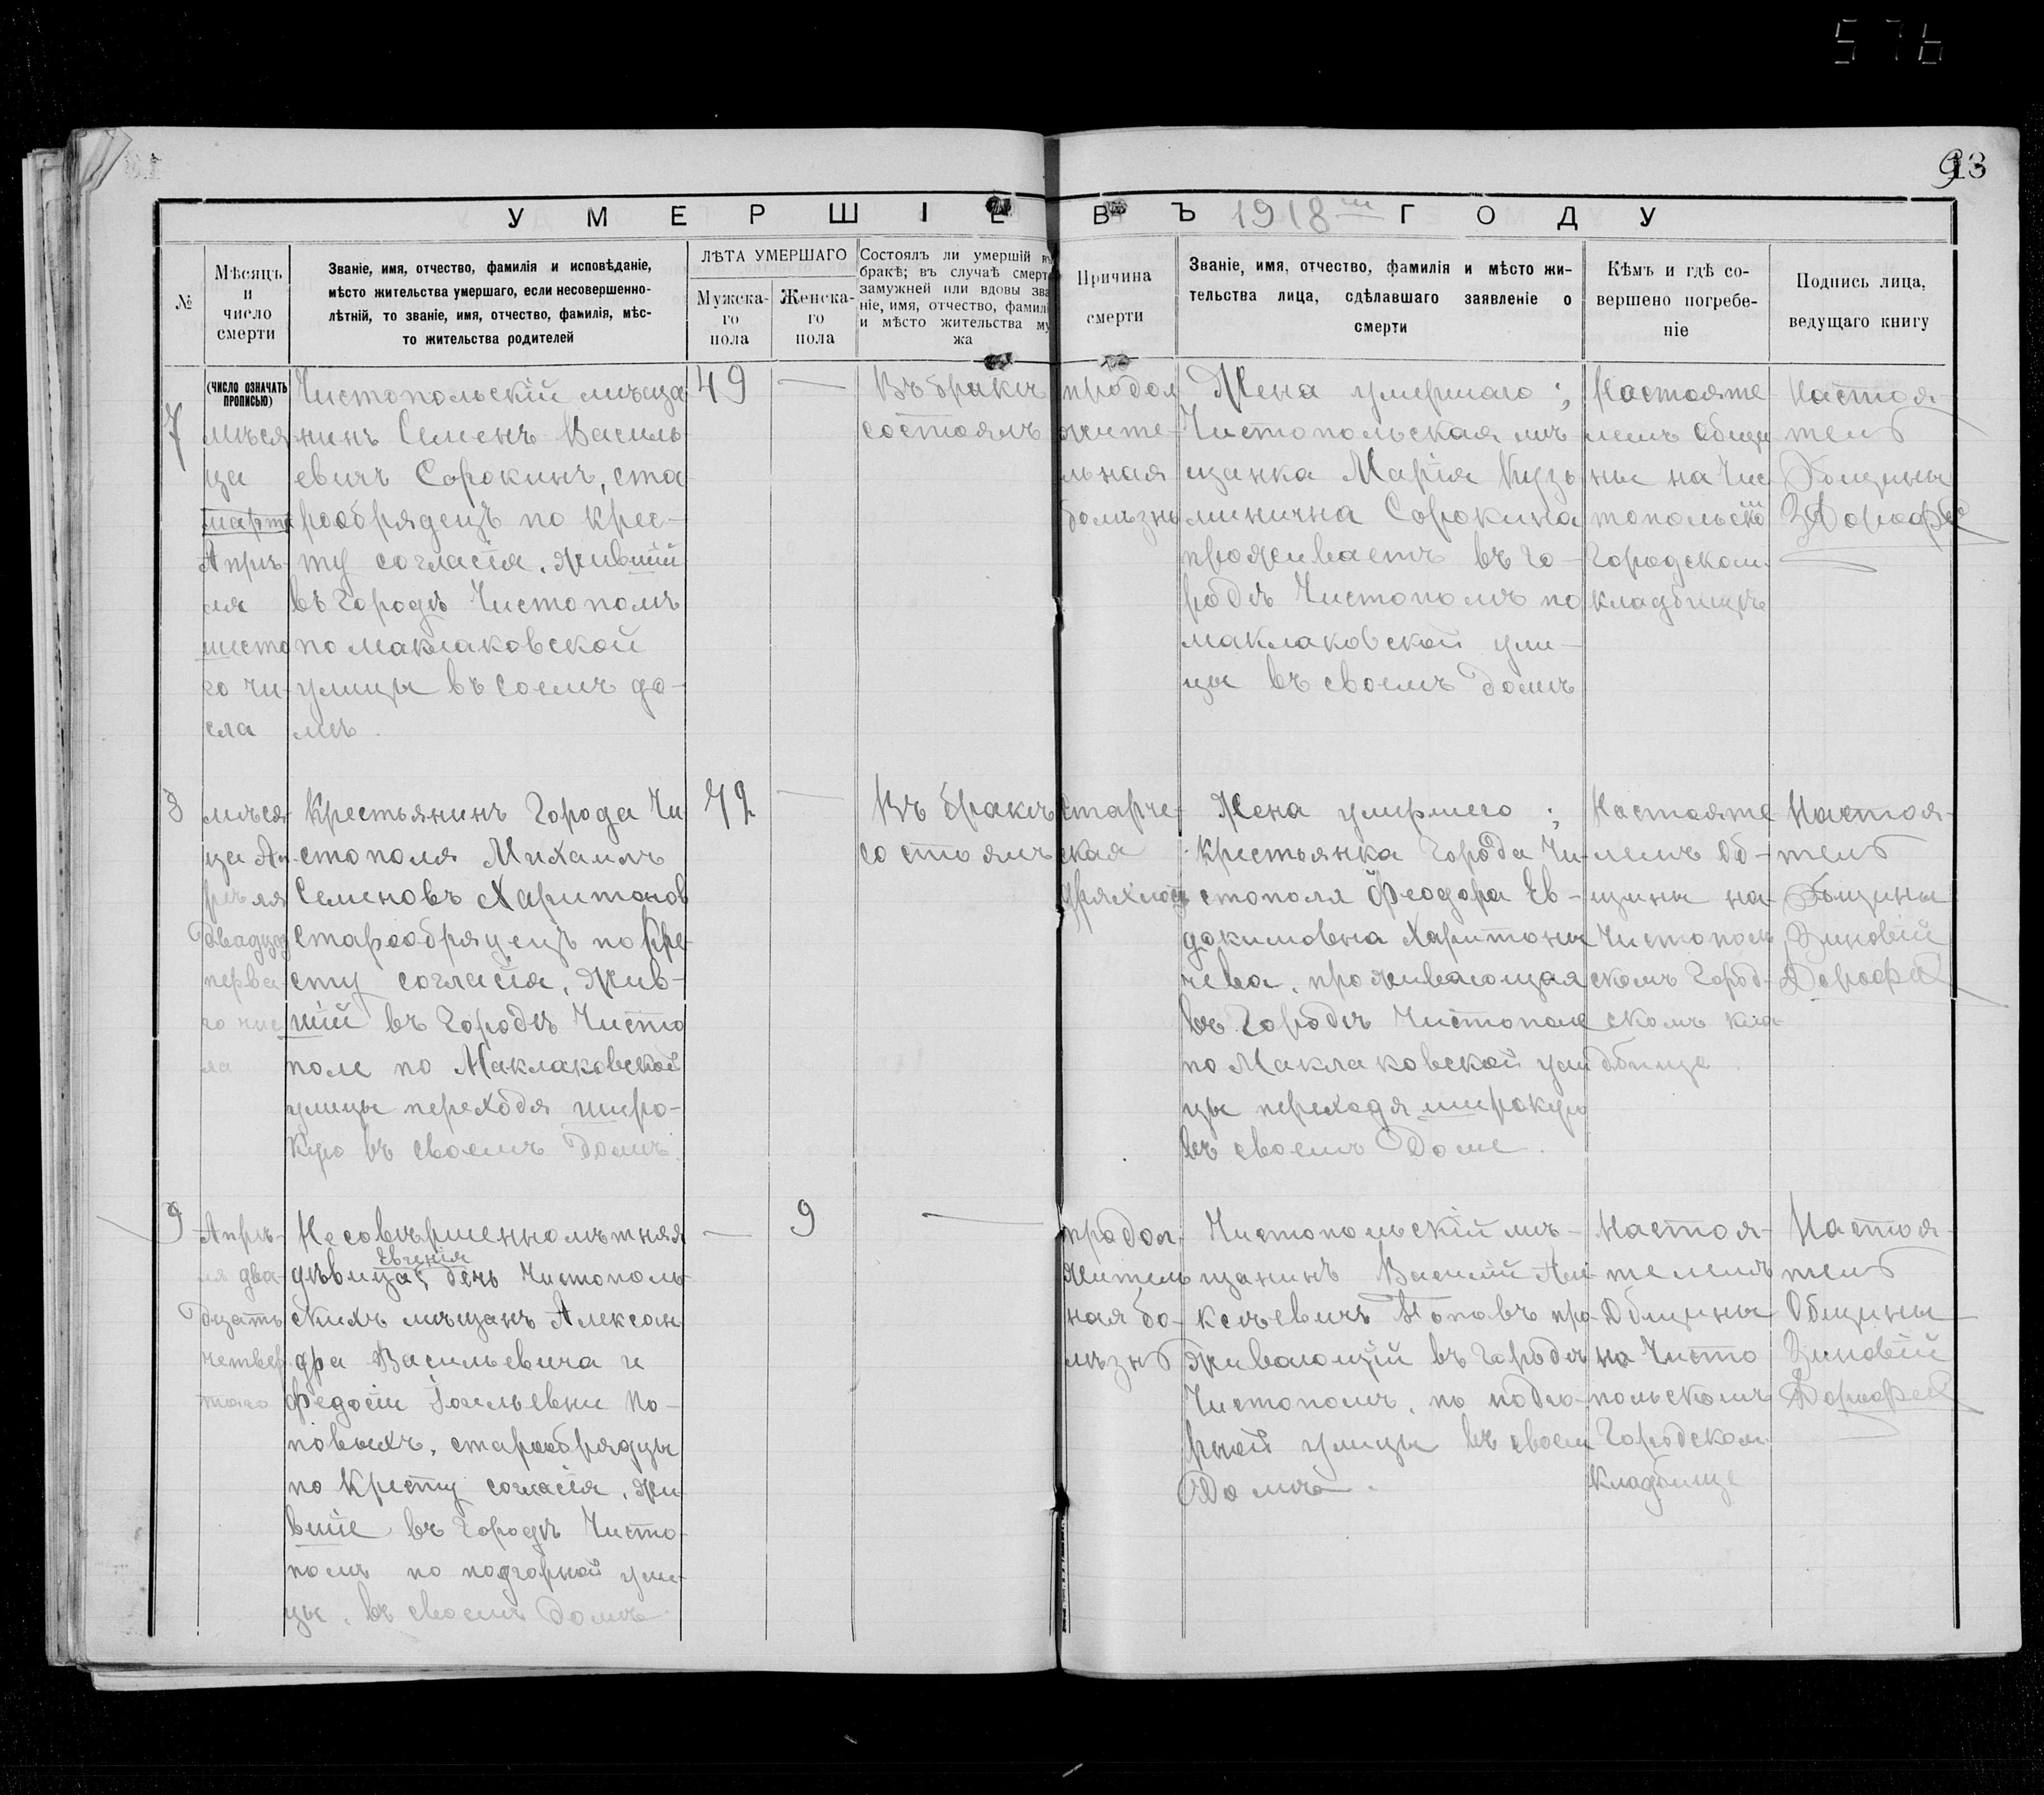 576
913
УМЕРШІЕ ВЪ 1918 ГОДУ
№
Мѣсяцъ
и
число
смерти
Званіе, имя, отчество, фамилія и исповѣданіе,
мѣсто жительства умершаго, если несовершенно-
лѣтній, то званіе, имя, отчество, фамилія, мѣс-
то жительства родителей
ЛѢТА УМЕРШАГО
Мужска-
го
пола
Женска-
го
пола
Состоялъ ли умершій въ
бракѣ; въ случаѣ смерт
замужней или вдовы зва
ніе, имя, отчество, фамил
и мѣсто жительства му
жа
Причина
смерти
Званіе, имя, отчество, фамилія и мѣсто жи-
тельства лица, сдѣлавшаго заявленіе о
смерти
Кѣмъ и гдѣ со-
вершено погребе-
ніе
Подпись лица,
ведущаго книгу
(ЧИСЛО ОЗНАЧАТЬ
ПРОПИСЬЮ)
7
мѣся
ца
марта
Апрѣ-
ля
шесто
го чи-
сла
Чистопольскій мѣща
нинъ Семенъ Василь
евичъ Сорокинъ, ста
рообрядецъ по крес-
ту согласія, жившій
въ Городѣ Чистополѣ
по маклаковской
улицы въ соемъ до-
мѣ.
49
—
Въ бракѣ
состоялъ
продол
жите-
льная
болѣзнь
Жена умершаго ;
Чистопольская мѣ
щанка Марія Кузь
минична Сорокина
проживаетъ въ го-
родѣ Чистополѣ по
маклаковской ули-
цы въ своемъ домѣ
Настояте
лемъ общи
ны на Чис
топольско
Городском
кладбищѣ
Настоя-
тель
Общины
З Дорофе
8
мѣся-
ца Ап-
рѣля
двадца
перва
го чис
ла
Крестьянинъ Города Чи
стополя Михаилъ
Семеновъ Харитонов
старообрядецъ по Кре-
сту согласія, жив-
шій въ Городѣ Чисто
поле по Маклаковской
улицы переходя широ-
кую въ своемъ домѣ.
72
—
Въ бракѣ
состоялъ
старче-
ская
дряхлость
Жена умершего ;
крестьянка Города Чи-
стополя Феодора Ев-
докимовна Харитоны
чева, проживающая
въ Городѣ Чистополе
по Маклаковской ули
цы переходя широкую
въ своемъ Доме.
Настояте
лемъ Об-
щины на
Чистополь
скомъ Город-
скомъ кла-
дбище
Настоя-
тель
Общины
Зиновій
Дорофе
9
Апрѣ-
ля два-
дцать
четвер
таго
Несовершеннолѣтняя
Евгенія
дѣвица, дочь Чистополь-
скихъ мѣщанъ Алексан
дра Васильевича и
Федосіи Васильевны По-
повыхъ, старообрядцы
по Кресту согласія, жи-
вшіе въ Городѣ Чисто-
полѣ по подгорной ули-
цы, въ своемъ Домѣ
—
9
—
продол-
житель
ная бо-
лѣзнь
Чистопольскій мѣ-
щанинъ Василій Але-
ксѣевичъ Поповъ про-
живающій въ Городѣ
Чистополѣ, по подго-
рной улицы въ своем
Домѣ.
Настоя-
телемъ
Общины
на Чисто
польскомъ
Городском
Кладбище
Настоя-
тель
Общины
Зиновій
Дорофей